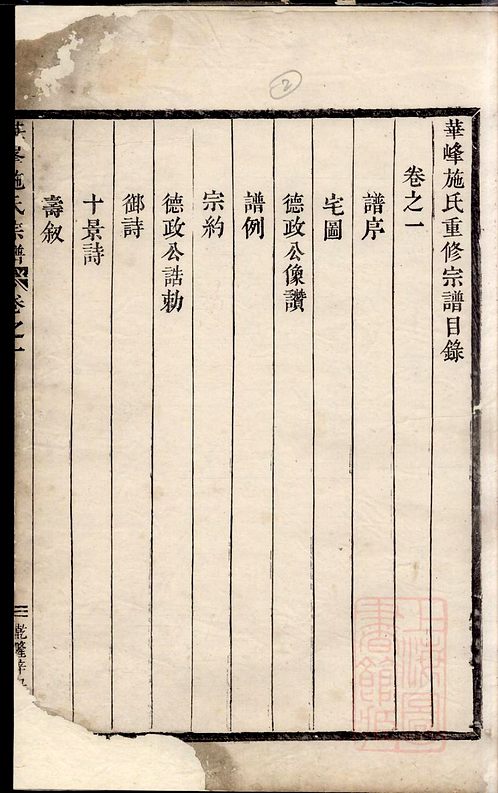 華峰施氏重修宗譜目錄
卷之一
譜序
宅圖
德政公像讚
譜例
宗約
德政公誥勅
御詩
十景詩
壽敘
華峯施氏宗譜
卷之一
二
乾隆
上海圖書館藏
2